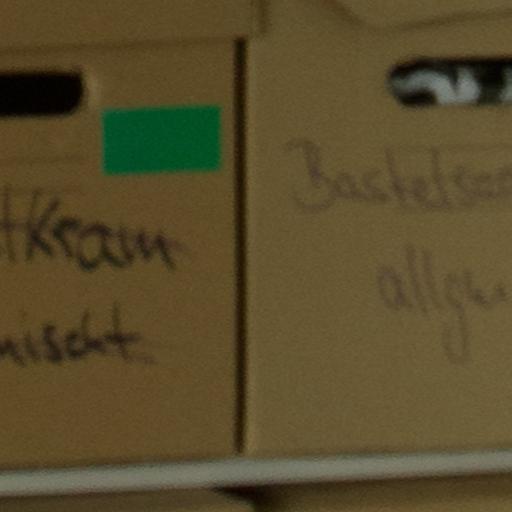 tKram
mischt
Bastelsa
allge